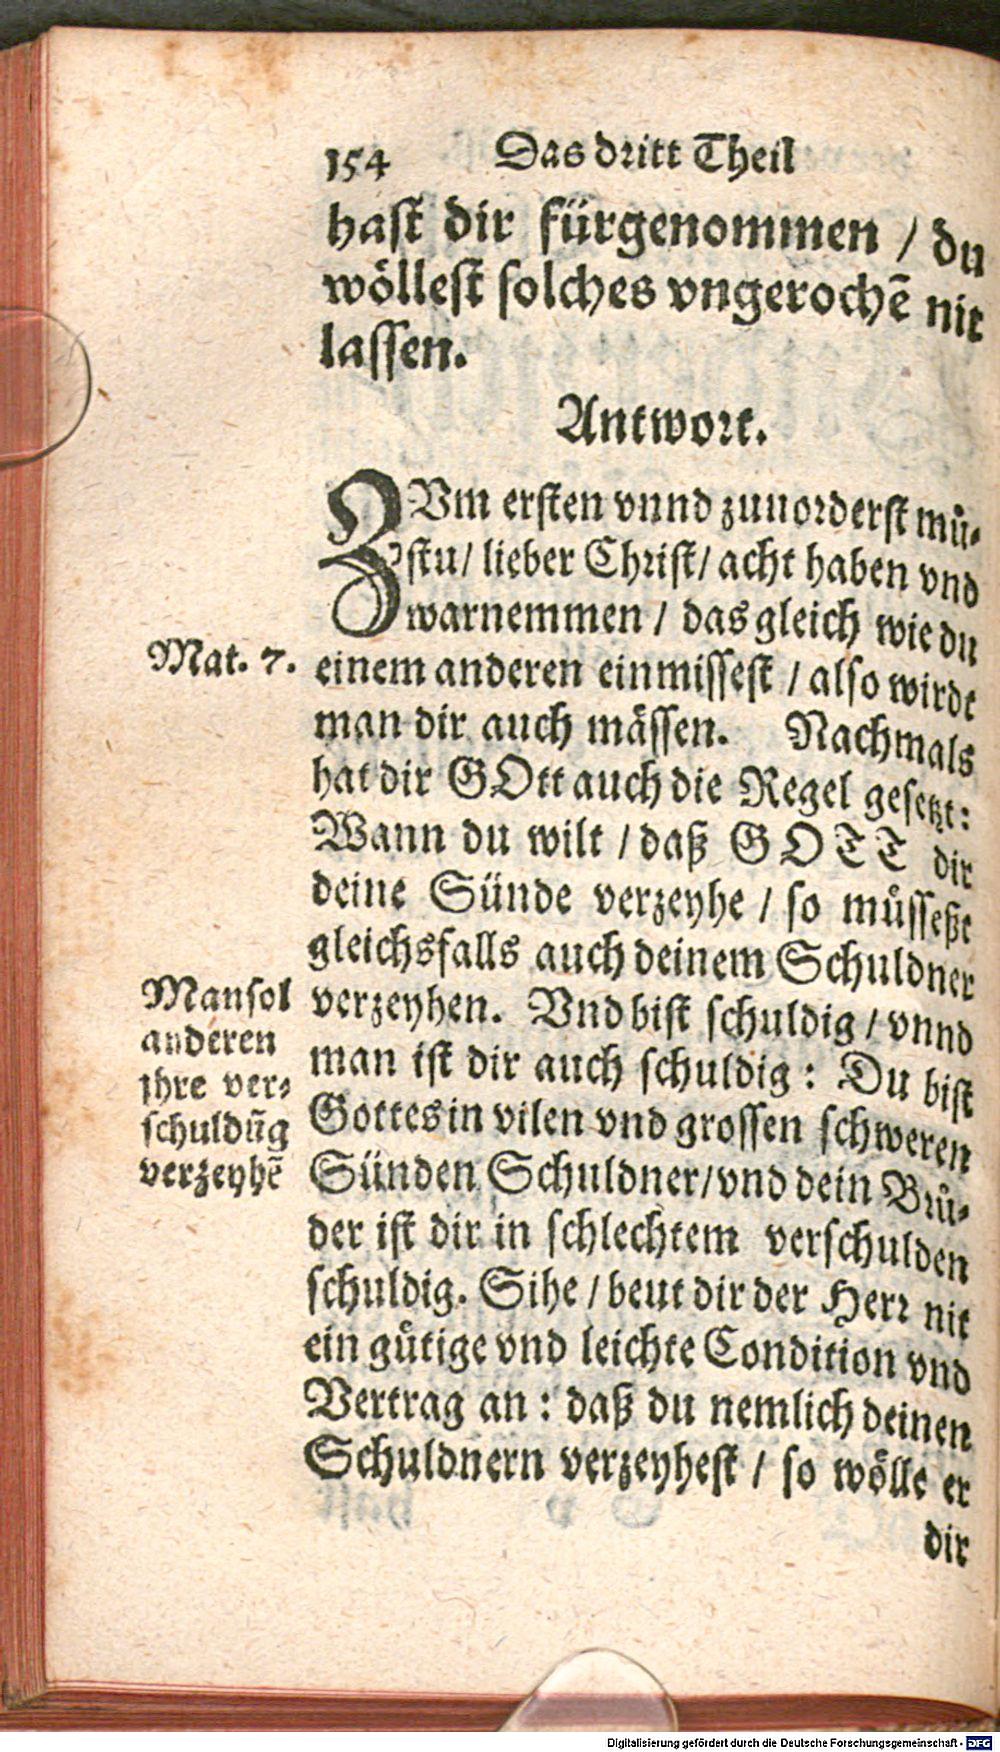 154 Das dritt Theil
hast dir fürgenommen / du
wöllest solches vngerochē nit
lassen.
Antwort.
ZVm ersten vnnd zuuorderst mů-
stu / lieber Christ / acht haben vnd
warnemmen / das gleich wie du
Mat. 7.
einem anderen einmissest / also wirdt
man dir auch mässen. Nachmals
hat dir GOtt auch die Regel gesetzt:
Wann du wilt / daß GOTT dir
deine Sünde verzeyhe / so můsseßt
gleichsfalls auch deinem Schuldner
verzeyhen. Vnd bist schuldig / vnnd
man ist dir auch schuldig: Du bist
Gottes in vilen vnd grossen schweren
Sünden Schuldner / vnd dein Brů-
der ist dir in schlechtem verschulden
schuldig. Sihe / beut dir der Herr nit
ein gůtige vnd leichte Condition vnd
Vertrag an: daß du nemlich deinen
Schuldnern verzeyhest / so wölle er
dir
Man sol
anderen
jhre ver-
schuldūg
verzeyhē
Digitalisierung gefördert durch die Deutsche Forschungsgemeinschaft - DFG